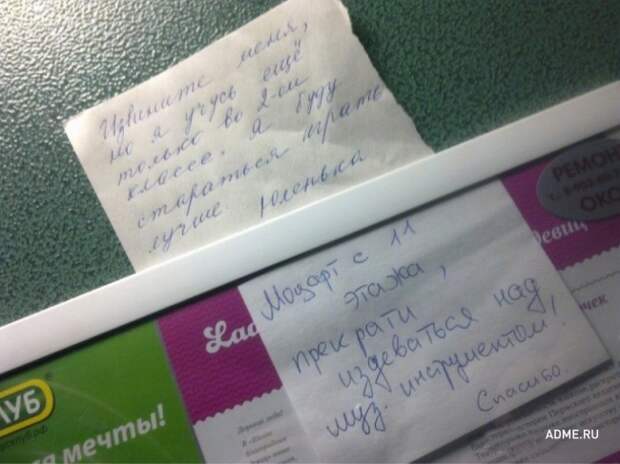 Извините меня,
но я учусь ещё
только во 2-ом
классе. а буду
стараться играть
лучше Юленька
РЕМОН
ОКО
Моцарт с 11
этажа,
прекрати
издеваться над
муз. инструментом!
Спасибо.
Lad
девиц
чек
УБ
я мечты!
ADME.RU